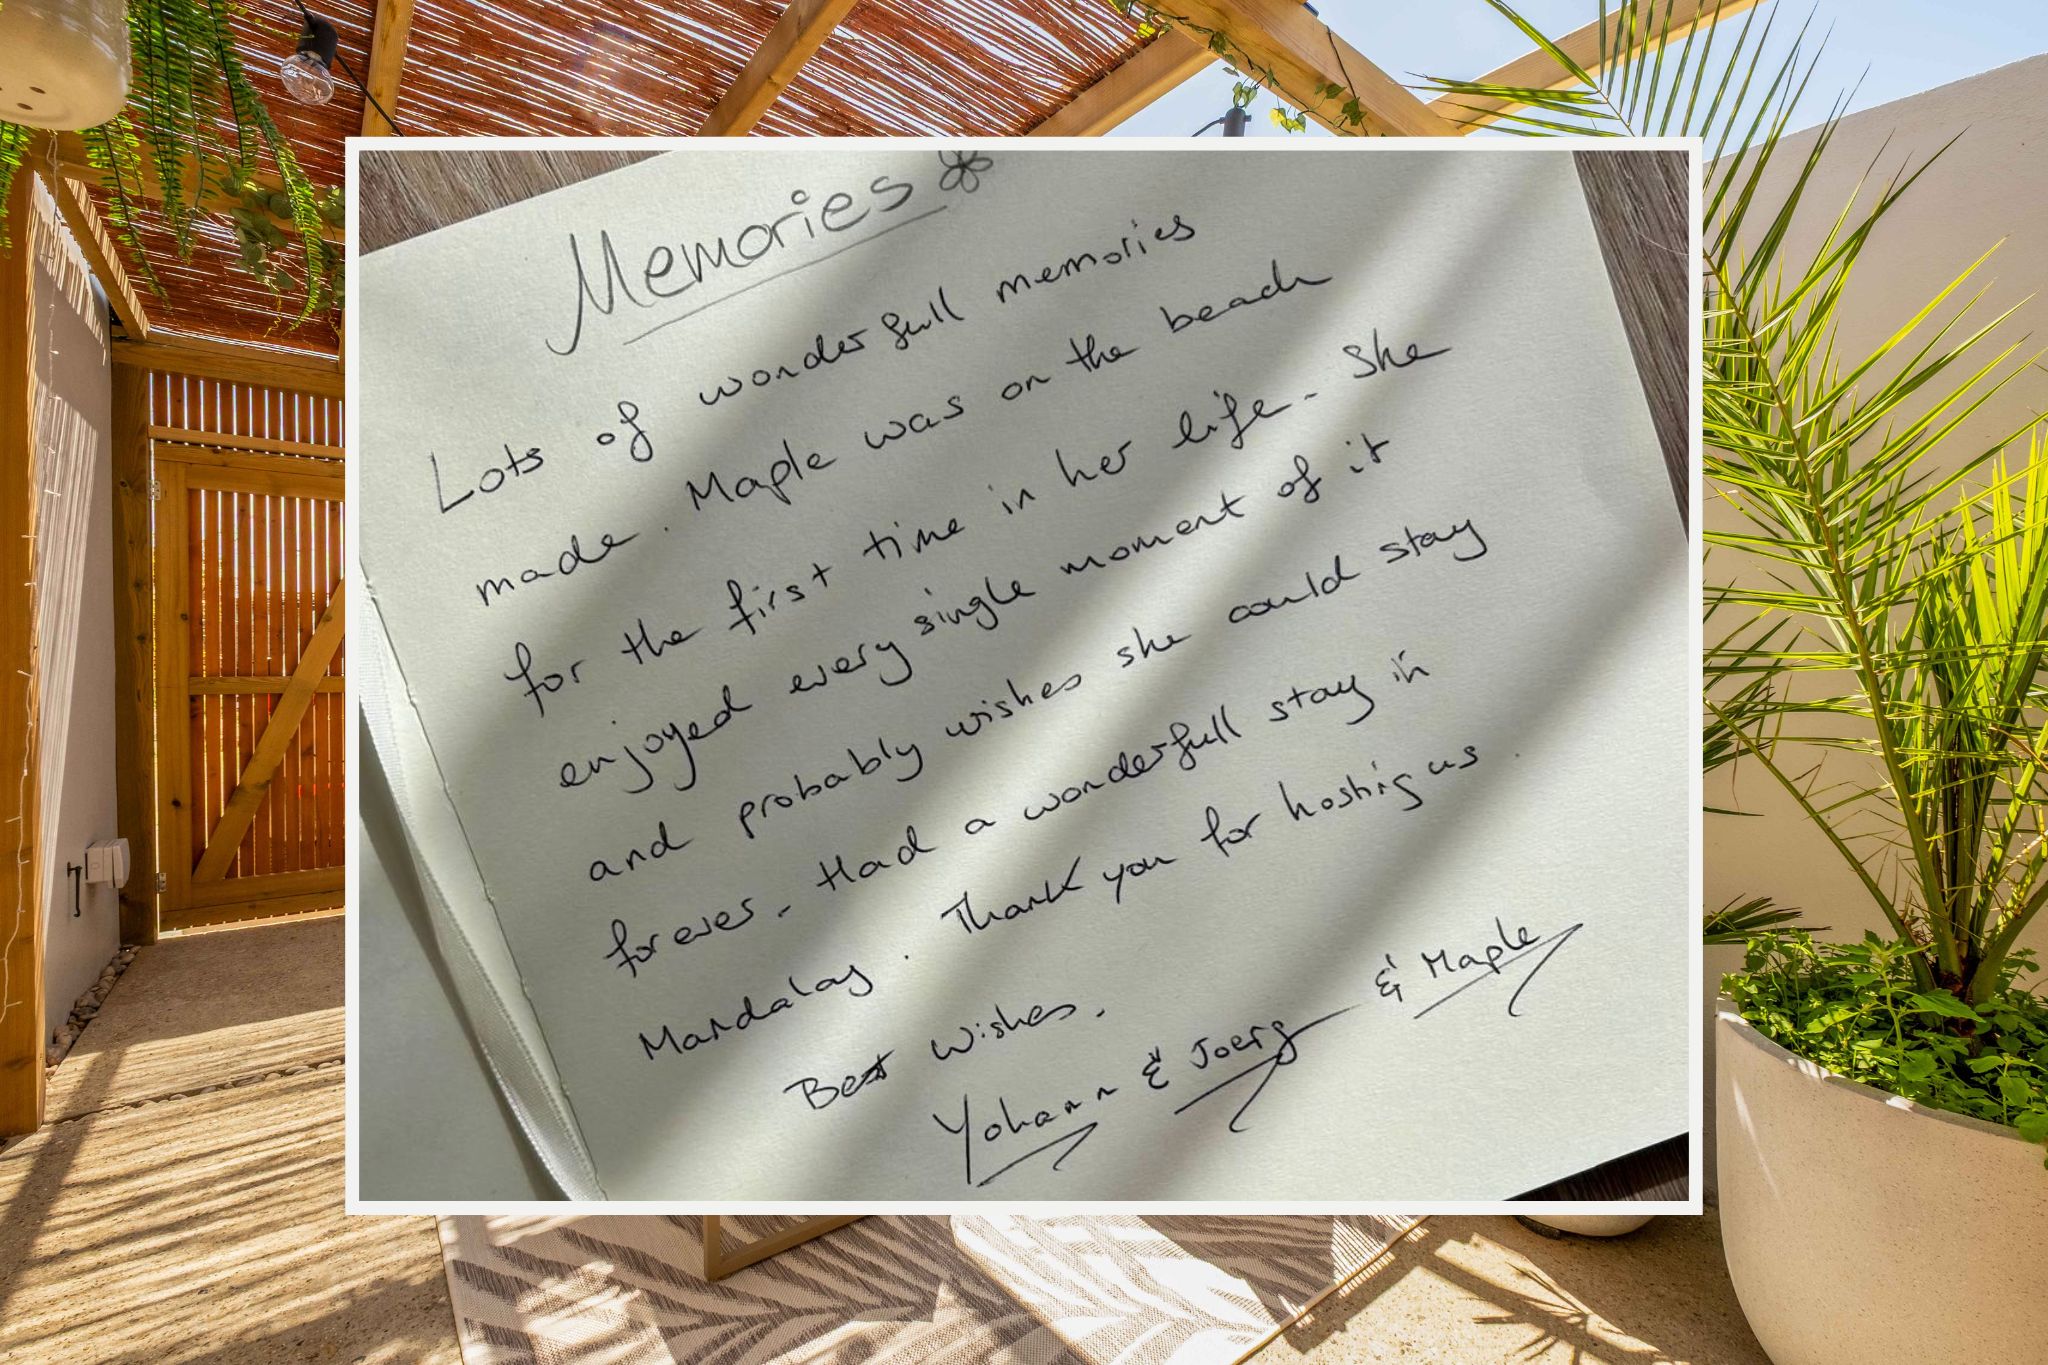 Memories
Lots of wonderfull memories
made. Maple was on the beach
for the first time in her life. She
enjoyed every single moment of it
and probably wishes she could stay
forever. Had a wonderfull stay in
Mandalay. Thank you for hostig us.
Best wishes,
Yohann & Joerg & Maple